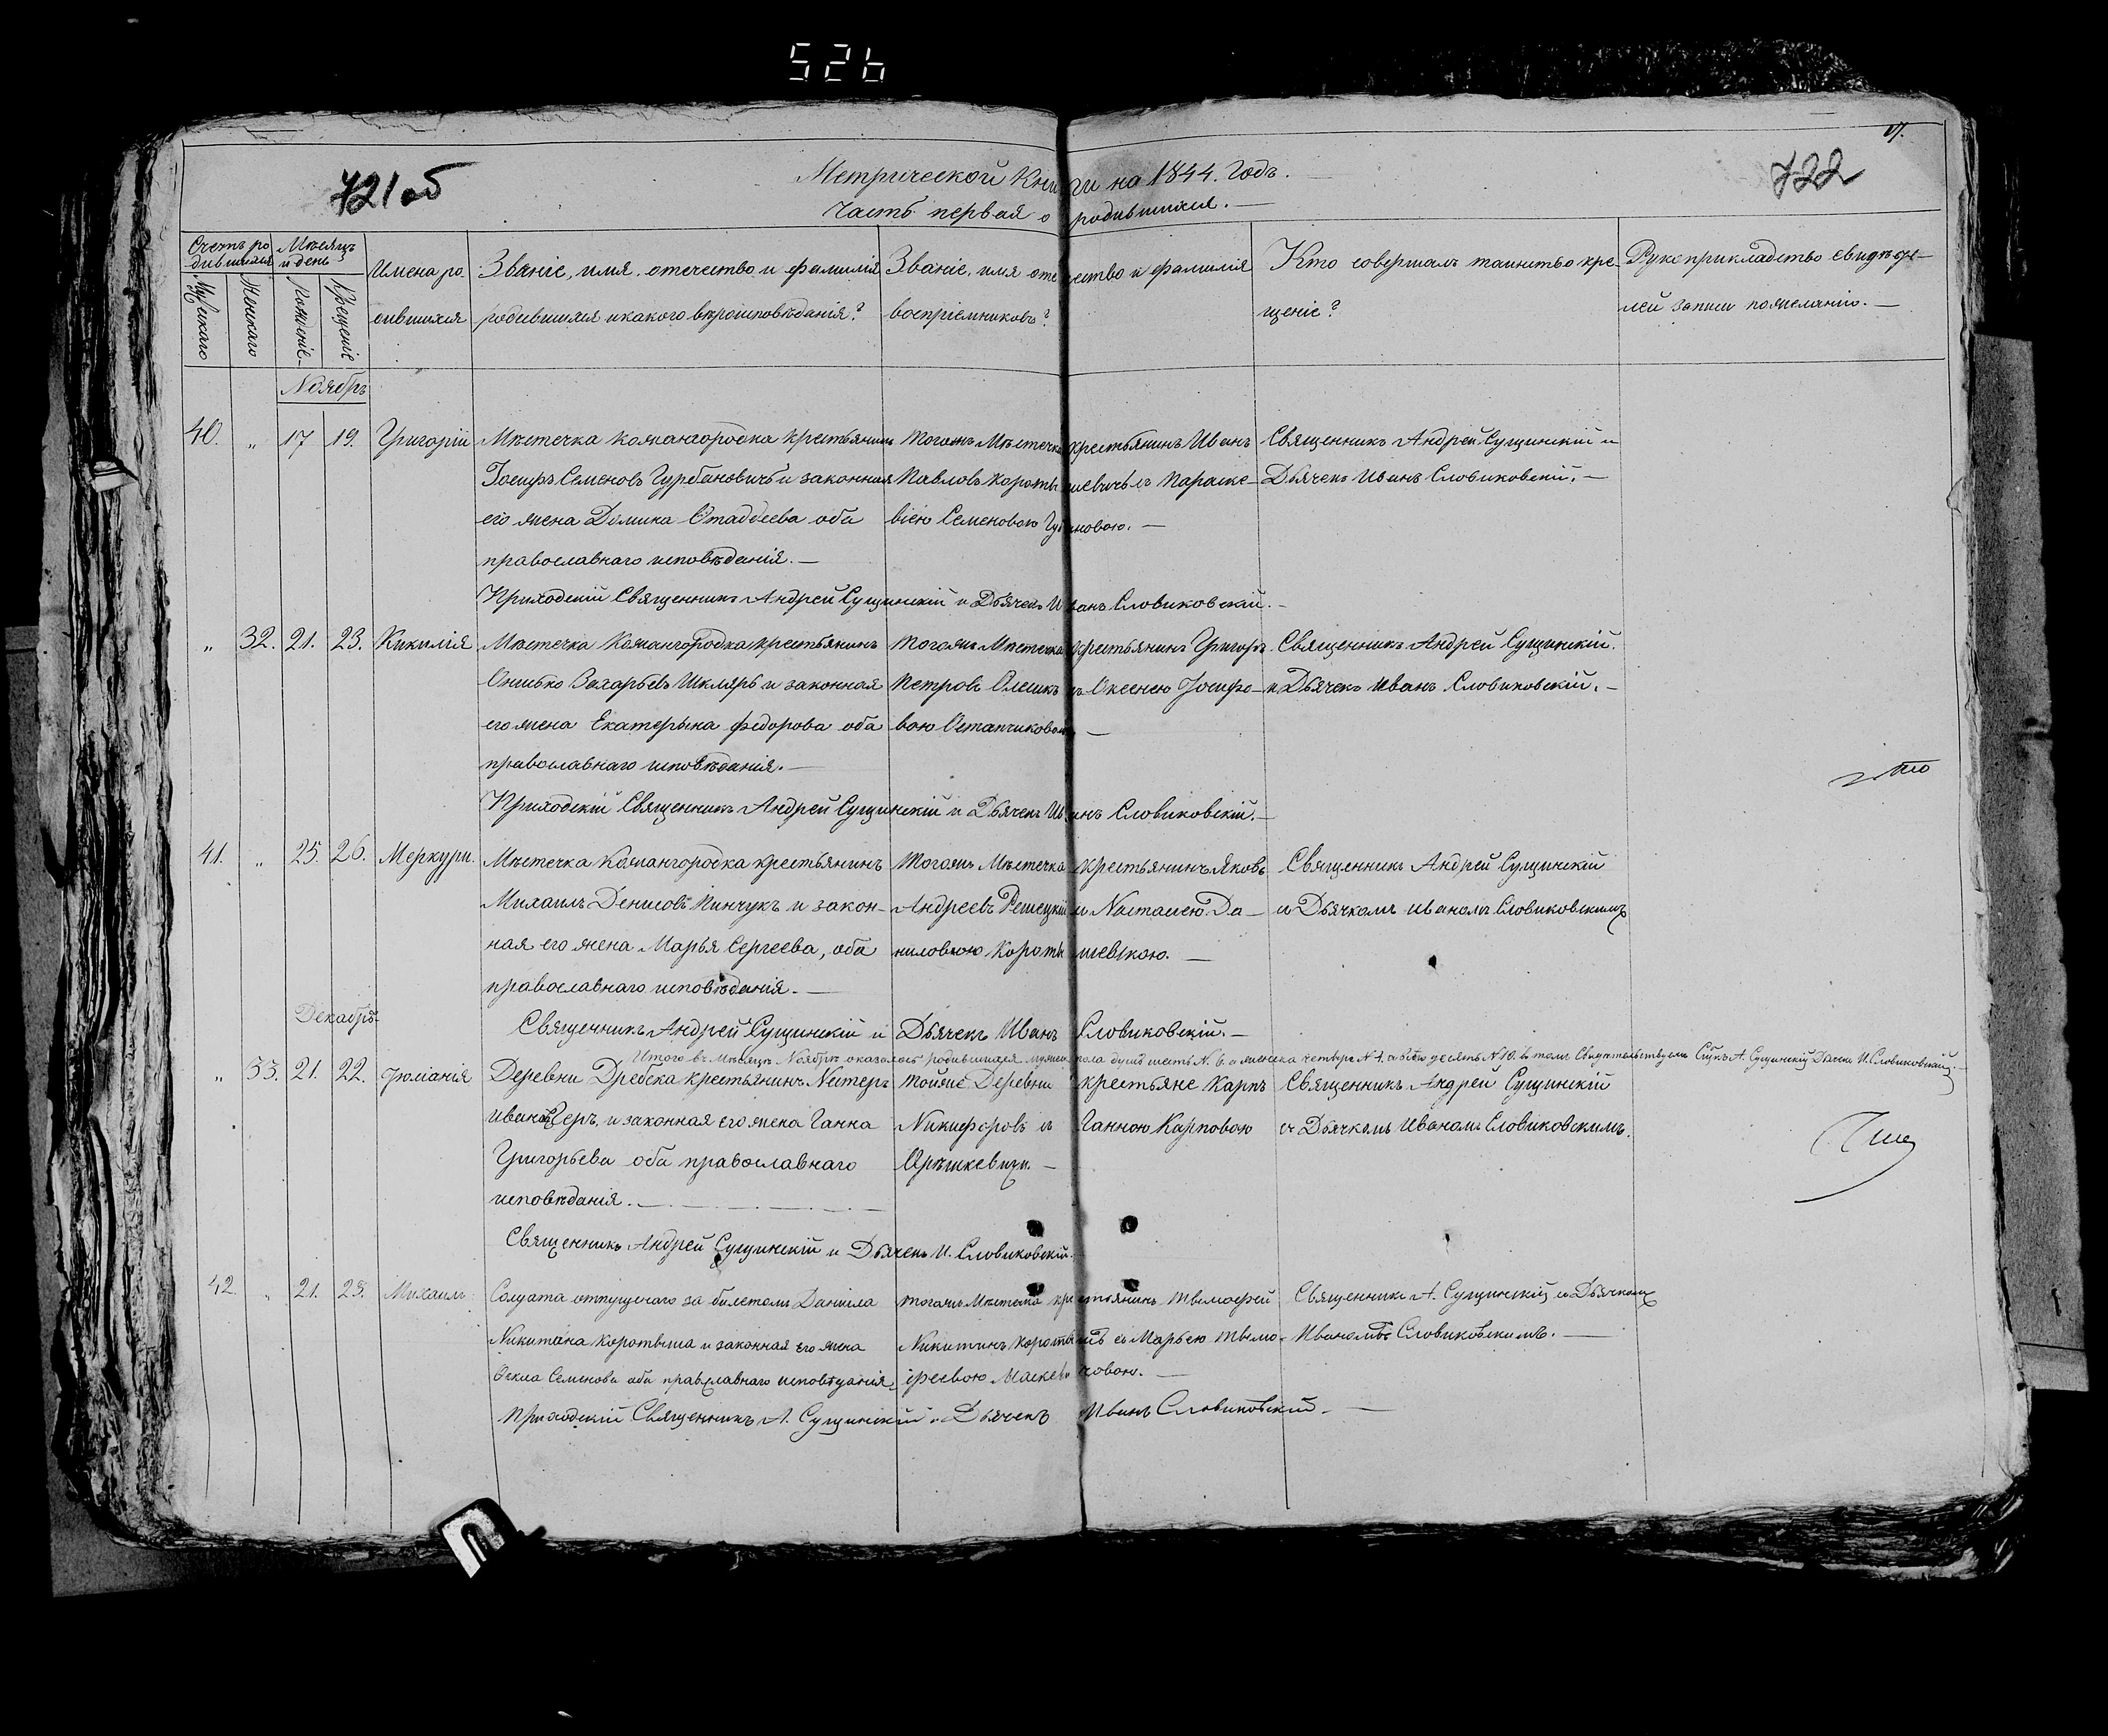 526
721об
722
17.
Метрической Книги на 1844. Годъ.
Часть первая о родившихся.
Счетъ родившихся
Мѣсяцъ и день
Мужскаго
Женскаго
Рожденіе
Крещеніе
Имена родившихся
Званіе, имя, отечество и фамилія родившихся и какого вѣроисповѣданія?
Званіе, имя отечество и фамилія воспріемниковъ?
Кто совершалъ таинство крещеніе?
Рукоприкладство свидѣтелей записи пожеланію.
Ноябрь
40. " 17 19. Григорій
Мѣстечка Кожангородка крестьянинъ
Іосифъ Семеновъ Гурбановичъ и законная
его жена Домика Фтаддеева оба
православнаго исповѣданія.
Тогожъ Мѣстечка крестьянинъ Иванъ
Павловъ Коротышевичъ съ Параске-
віею Семеновою
Священникъ Андрей Сущинскій и
Дьячекъ Иванъ Словиковскій.
Приходскій Священникъ Андрей Сущинскій и Дьячекъ Иванъ Словиковскій.
" 32. 21. 23. Кикилія
Мѣстечка Кожангородка крестьянинъ
Онисько Захарьевъ Шкляръ и законная
его жена Екатерына Федорова оба
православнаго исповѣданія.
Тогожъ Мѣстечка крестьянинъ Григоръ
Петровъ Олешкъ съ Оксенею Іосифо-
вою Остапчиковою
Священникъ Андрей Сущинскій.
и Дьячекъ Иванъ Словиковскій.
Приходскій Священникъ Андрей Сущинскій и Дьячекъ Иванъ Словиковскій.
41. " 25. 26. Меркури.
Мѣстечка Кожангородка крестьянинъ
Михаилъ Денисовъ Пинчукъ и закон-
ная его жена Марья Сергеева, оба
православнаго исповѣданія.
Тогожъ Мѣстечка крестьянинъ Яковъ
Андреевъ Решецкій и Настасею Да-
ниловою Коротышевскою.
Священникъ Андрей Сущинскій
и Дьячкомъ Иваномъ Словиковскимъ
Священникъ Андрей Сущинскій и Дьячекъ Иванъ Словиковскій.
Декабрь
Итого въ Мѣсяцѣ Ноябрѣ оказалось родившихся мужеска пола душъ шесть N. 6. а женска четыре N 4. а всѣхъ десять N 10. въ томъ Свидѣтельствуемъ Сщнкъ А. Сущинскій Дьячекъ И. Словиковскій
" 33. 21. 22. Іюліанія
Деревни Дребска крестьянинъ Нестеръ
Ивановъ и законная его жена Ганна
Григорьева оба православнаго
исповѣданія.
Тойже Деревни крестьяне Карпъ
Никифоровъ и Ганною Карповою
Орѣшкевичи
Священникъ Андрей Сущинскій
съ Дьячкомъ Иваномъ Словиковскимъ.
Священникъ Андрей Сущинскій и Дьячекъ И. Словиковскій.
42. " 21. 23. Михаилъ
Солдата отпущенаго за билетомъ Даніила
Никитина Коротыша и законная его жена
Фекла Семенова оба православнаго исповѣданія
тогожъ Мѣстечка крестьянинъ Тымофей
Никитинъ Коротышъ съ Марьею Тымо-
феевою Маскевичовою.
Священникъ А. Сущинскій съ Дьячкомъ
Иваномъ Словиковскимъ.
Приходскій Священникъ А. Сущинскій и Дьячекъ Иванъ Словиковскій.